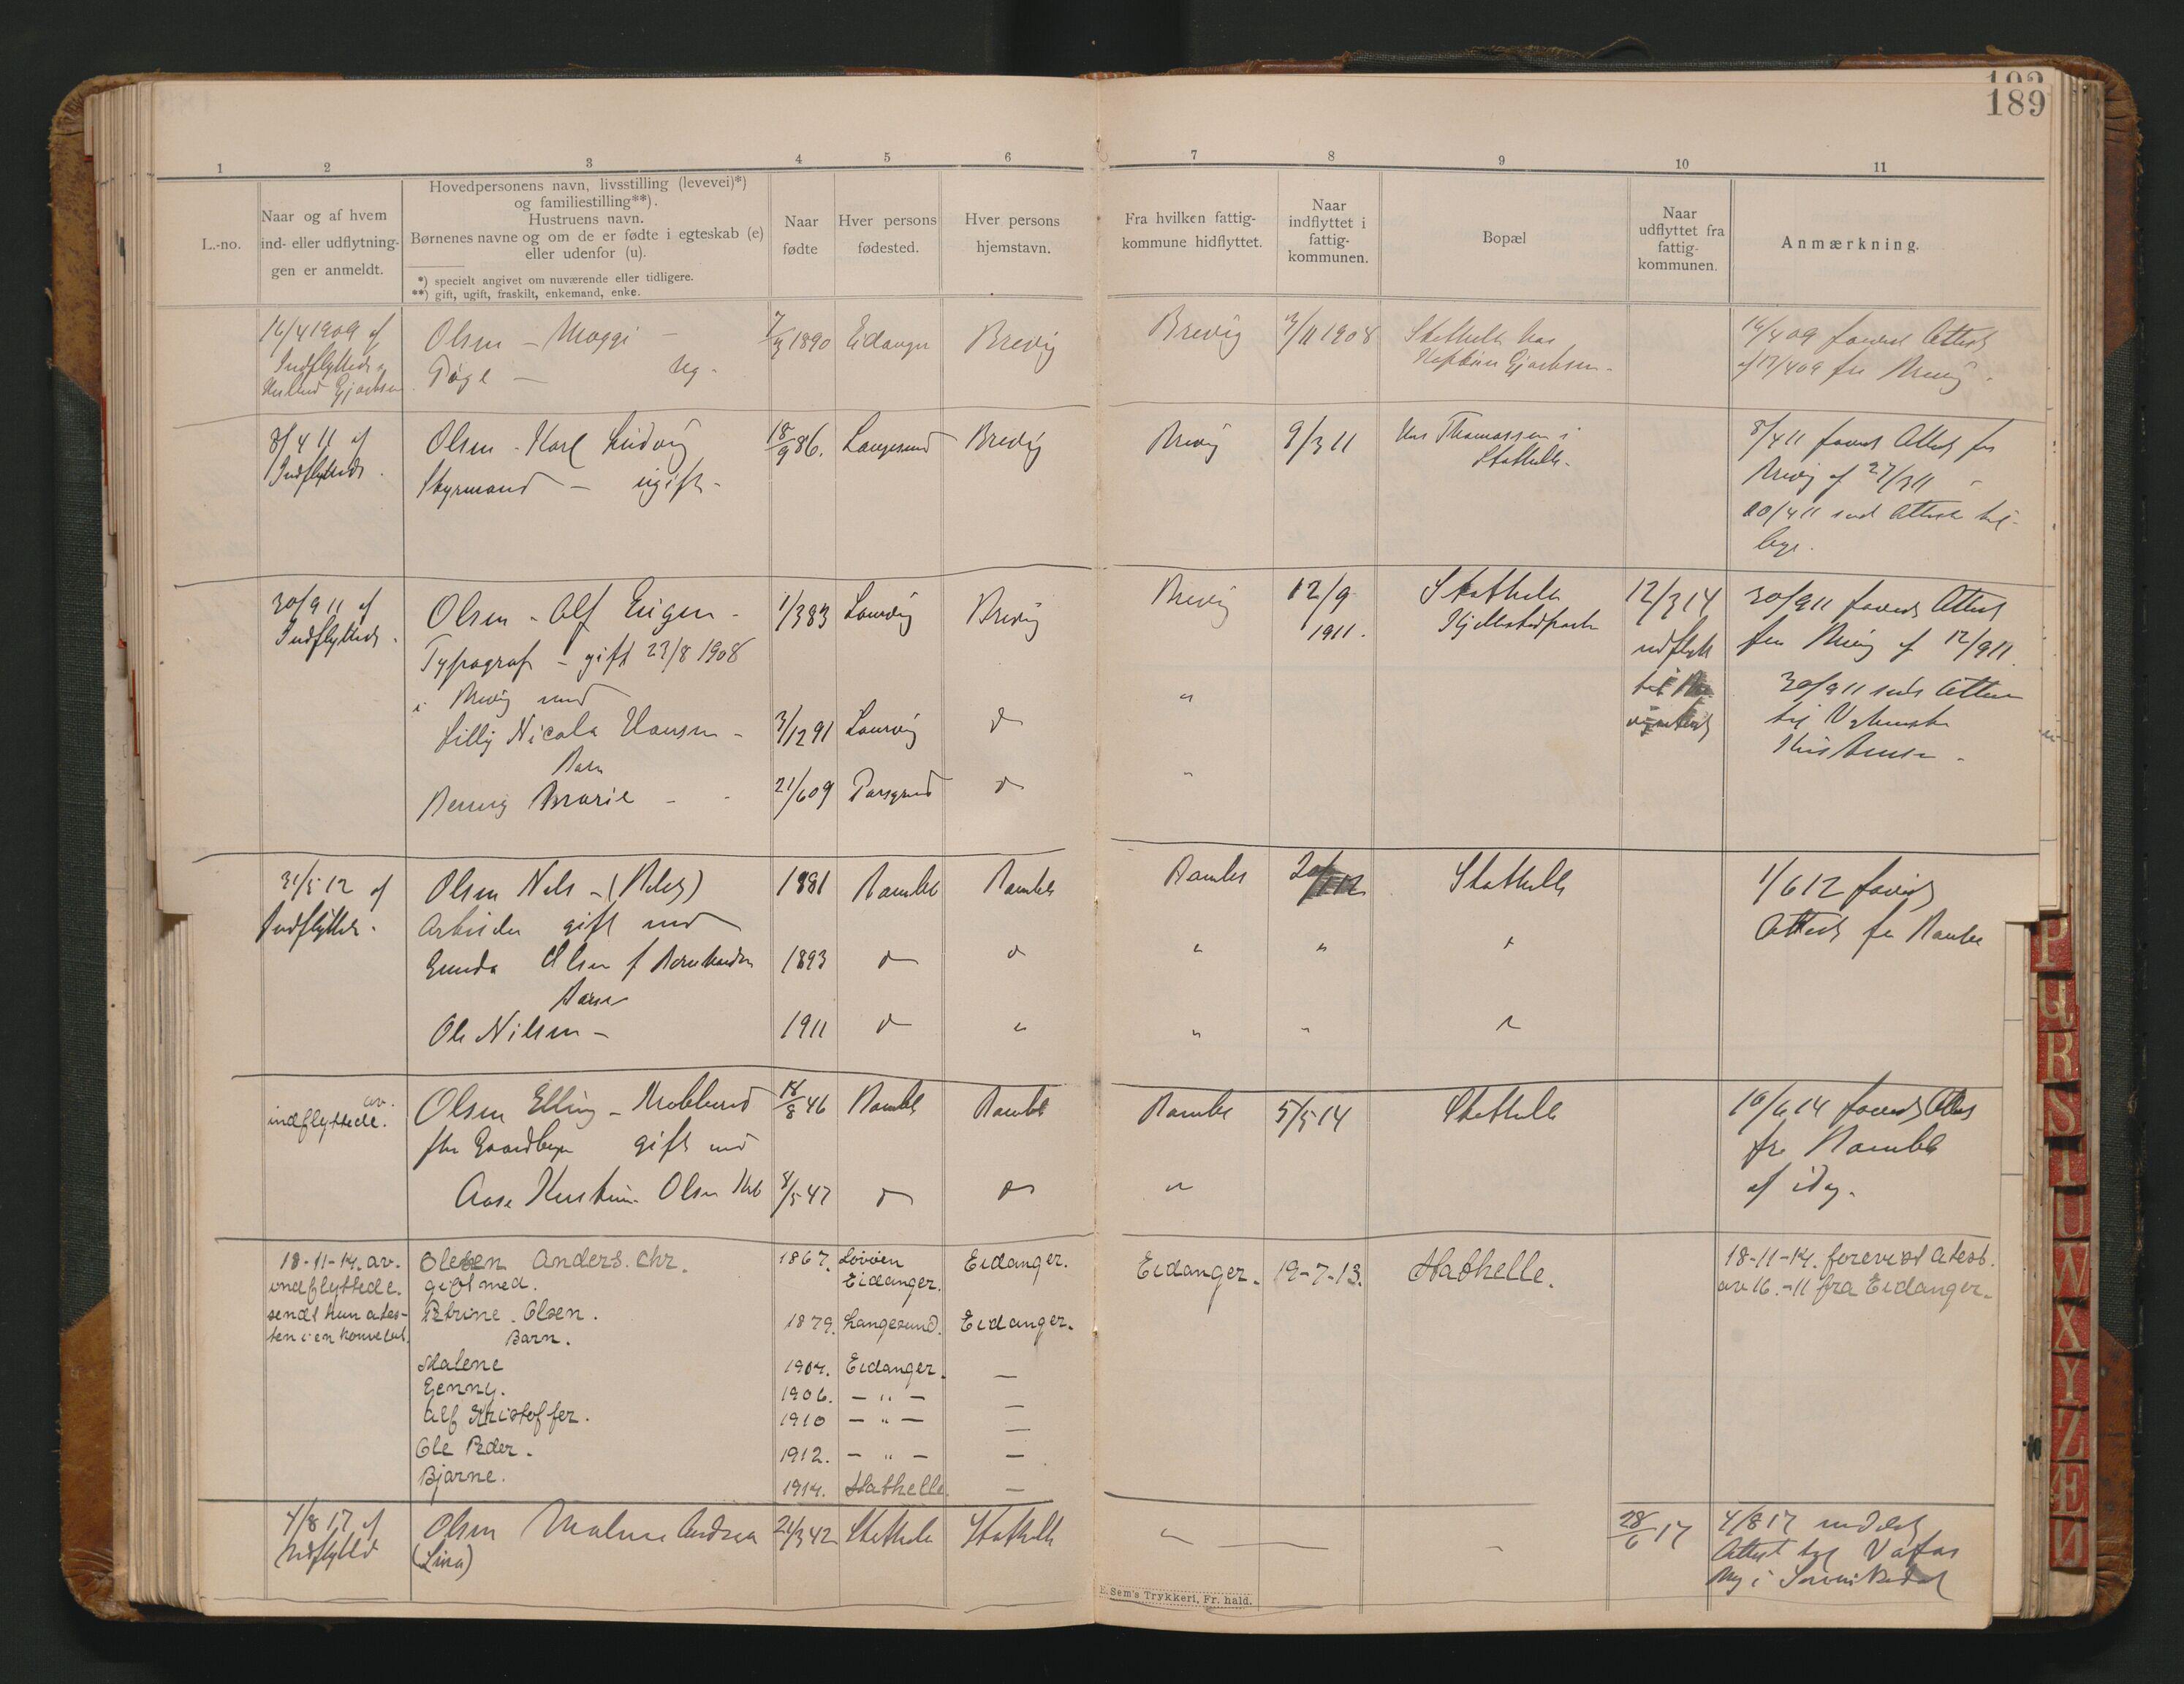 189
1 2 3 4 5 6 7 8 9 10 11
L.-no.
Naar og af hvem
ind- eller udflytnin-
gen er anmeldt.
Hovedpersonens navn, livsstilling (levevei)*)
og familiestilling**).
Hustruens navn.
Børnenes navne og om de er fødte i egteskab (e)
eller udenfor (u).
*) specielt angivet om nuværende eller tidligere.
**) gift, ugift, fraskilt, enkemand, enke.
Naar
fødte
Hver persons
fødested.
Hver persons
hjemstavn.
Fra hvilken fattig-
kommune hidflyttet.
Naar
indflyttet i
fattig-
kommunen.
Bopæl
Naar
udflyttet fra
fattig-
kommunen.
Anmærkning.
16/4 1909 af
Indflyttede
Olsen - Maggi -
Pige - ug.
1890 Eidanger Brevig
Brevig 3/11 1908 Stathelle hos
14/4 09 forevist Attest
af 17/4 09 fra Brevig.
8/4 11 af
Indflyttede.
Olsen - Karl Ludvig
Styrmand - ugift -
18/9 86. Langesund Brevig
Brevig 9/3 11 Hos Thomassen i
Stathelle -
8/4 11 forevist Attest fra
Brevig af 27/3 11
20/4 11 sendt Attesten til-
bage.
30/9 11 af
Indflyttede.
Olsen - Alf Eugen -
Typograf - gift 23/8 1908
i Brevig med
Lilly Nicola Hansen -
Barn
Marie - -
1/3 83 Laurvig Brevig
3/12 91 Laurvig d
21/6 09 Porsgrund d
Brevig 12/9
1911.
Stathelle
"
"
12/3 14
udflytt
til
30/9 11 forevist Attest
fra Brevig af 12/9 11.
30/9 11 sendt Attesten
til
31/5 12 af
Indflyttede.
Olsen Nils -
Arbeider gift med
Gunda Olsen f
Barn
Ole Nilsen -
1881 Bamble Bamble
1893 d d
1911 d "
Bamble Stathelle
" " "
" " "
1/6 12 forevist
Attest fra Bamble
av.
indflyttede.
Olsen Elling -
fhv Gaardbruger gift med
Aase Olsen
18/8 46 Bamble Bamble
8/5 47 d d
Bamble 5/5 14 Stathelle
"
16/6 14 forevist Attest
fra Bamble
af idag.
18-11-14. av.
indflyttede.
sendt ham ates-
ten i en konvelut.
Olesen Anders. Chr.
gift med.
Petrine. Olsen.
Barn.
Malene
Genny.
Alf Kristoffer.
Ole Peder.
Bjarne.
1867. Løvøen
Eidanger.
Eidanger.
1879. Langesund. Eidanger.
1904. Eidanger. —
1906. — " — —
1910 — " — —
1912. — " — —
1914. Stathelle. —
Eidanger. 19-7-13. Stathelle.
18-11-14. forevist Atest.
av 16.-11 fra Eidanger.
4/8 17 af
Udflytted
Olsen Malene Andrea
(Lina)
21/3 42 Stathelle Stathelle
28/6 17
4/8 17 meddelt
Attest til
E. Sem's Trykkeri, Fr. hald.
P
Q
R
S
T
U
W
X
Y
Z
Æ